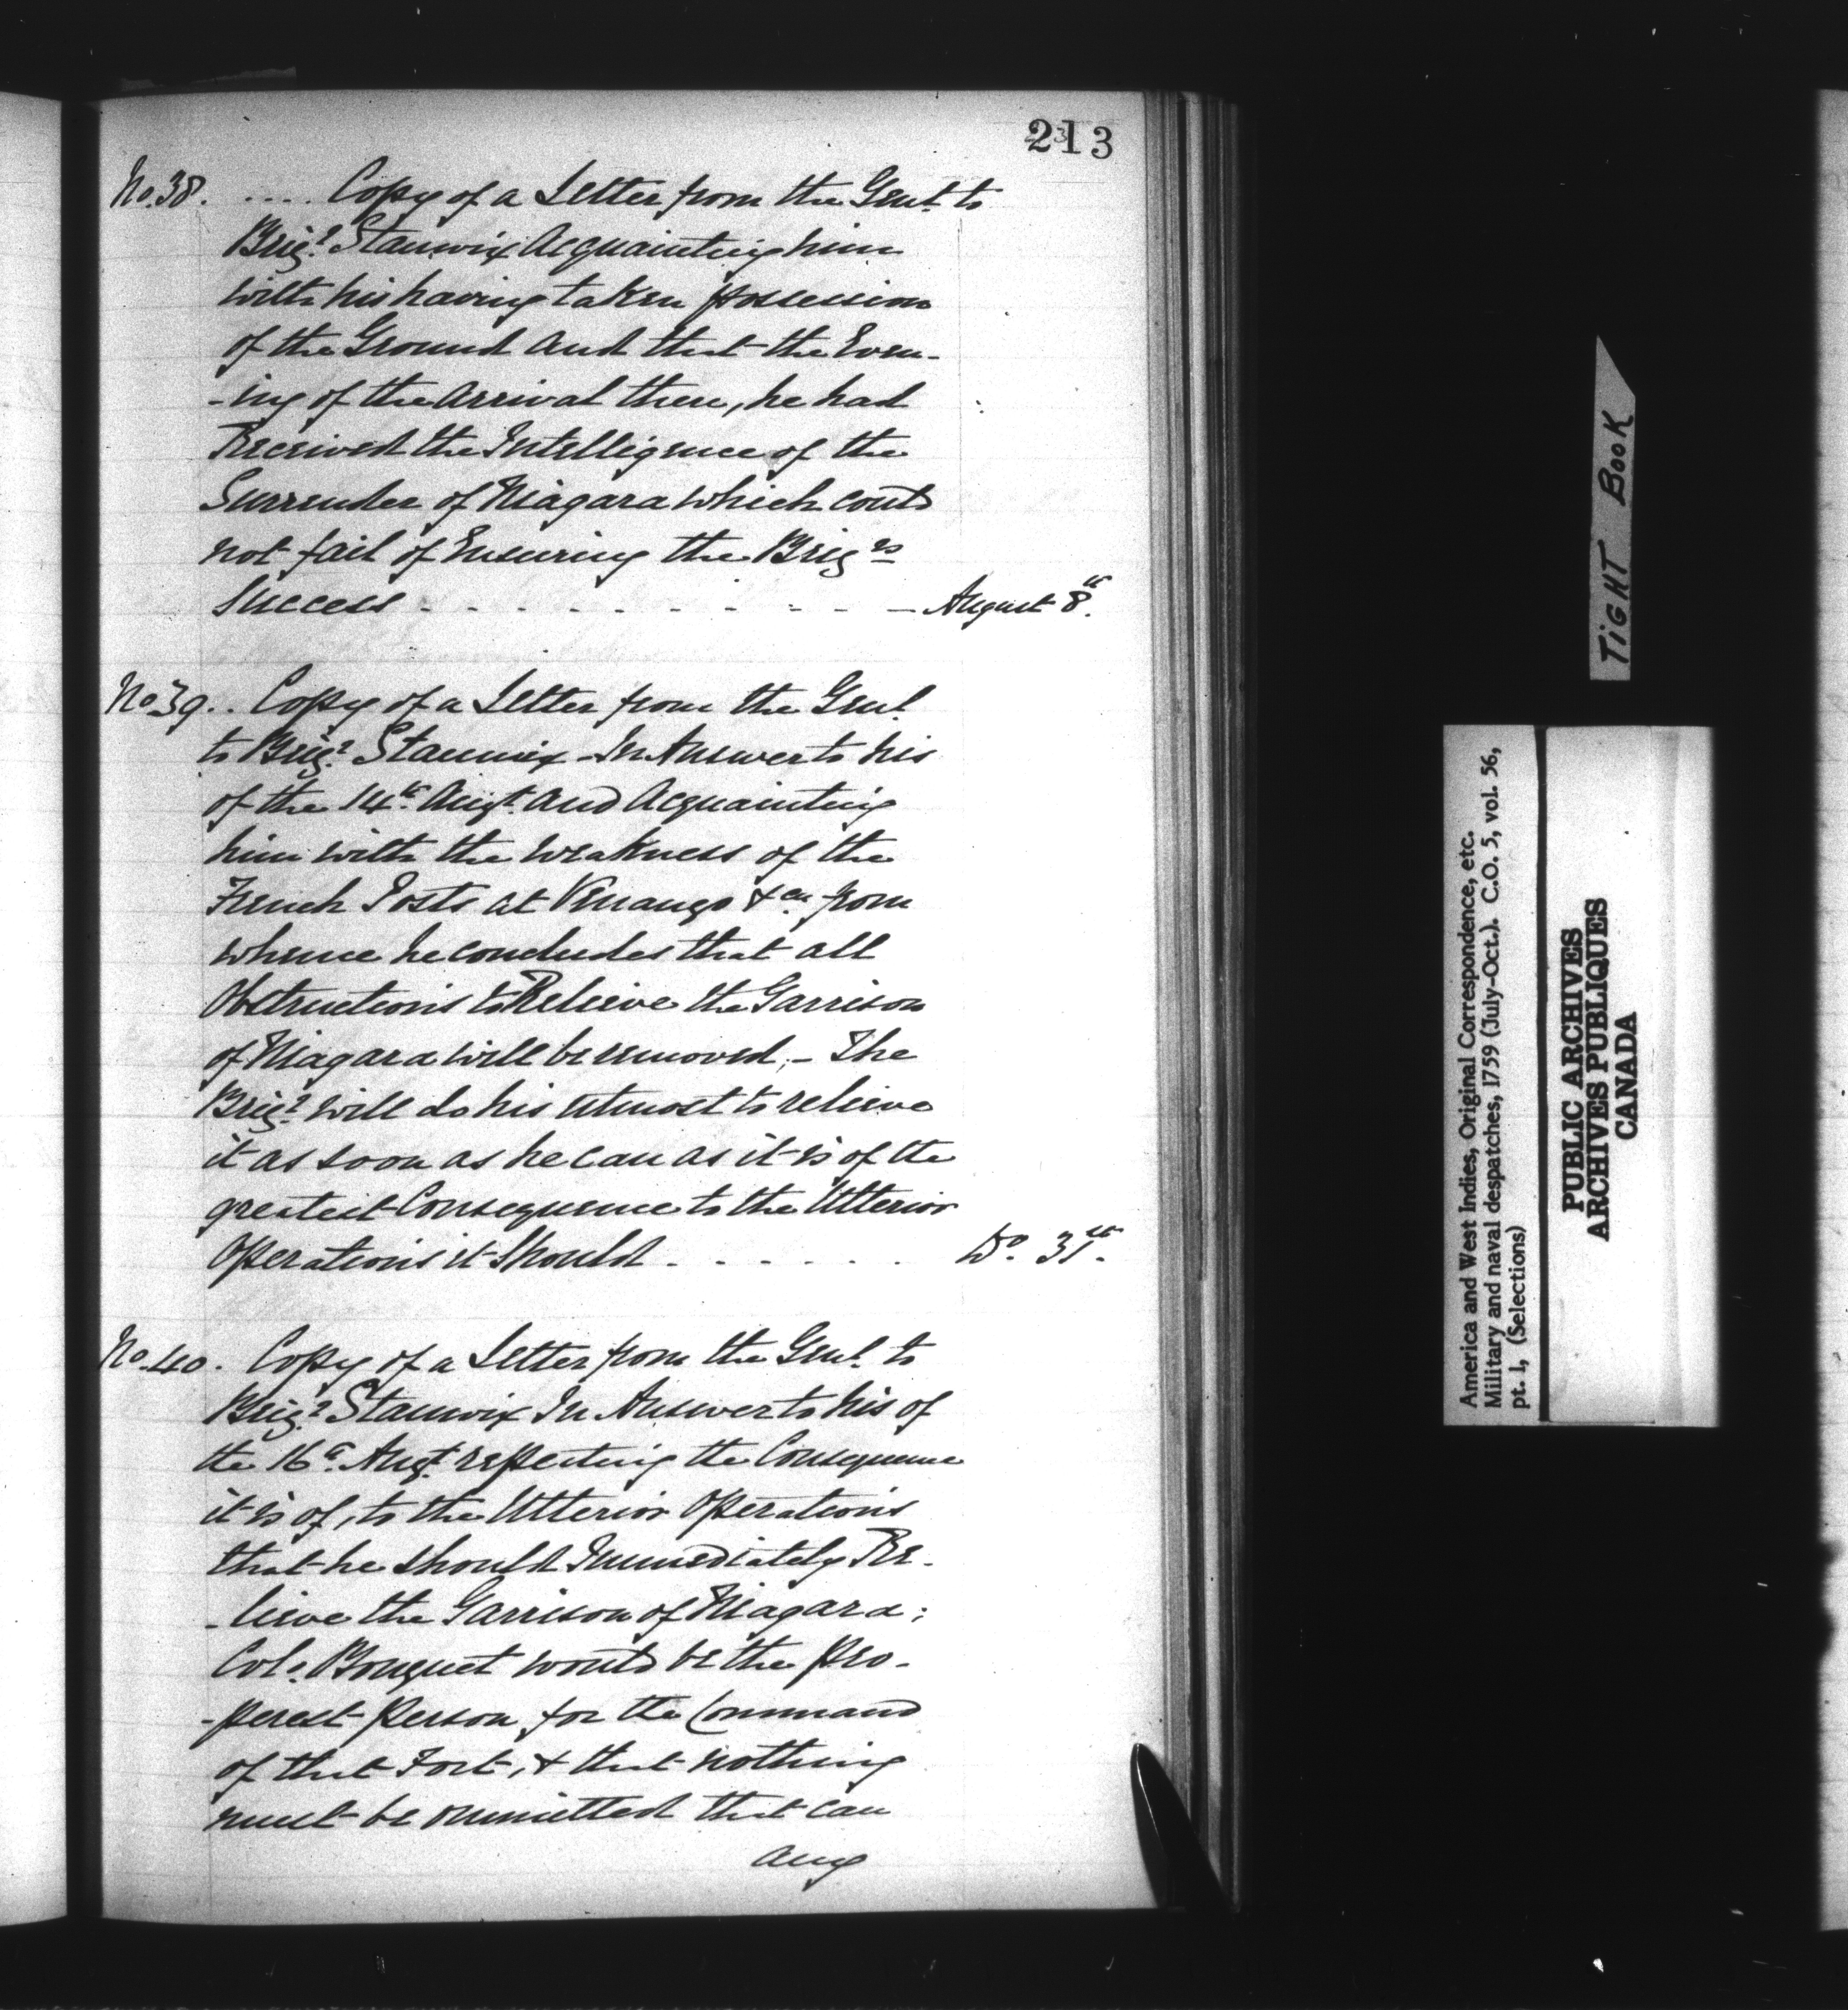 213
No. 38. .... Copy of a Letter from the Genl. to
Brigr. Stanwix Acquainting him
with his having taken possession
of the Ground and that the Even-
-ing of the Arrival there, he had
Received the Intelligence of the
Surrender of Niagara which could
not fail of Ensuring the Brigrs
Success - - - - - - - - - - August 8th.
No 39. . Copy of a Letter from the Genl.
to Brigr. Stanwix - In Answer to his
of the 14th. Augt. and Acquainting
him with the weakness of the
French Posts at Venango &ca. from
whence he concludes that all
Obstructions to Relieve the Garrison
of Niagara will be removed; - The
Brigr. will do his utmost to relieve
it as soon as he can as it is of the
greatest Consequence to the Ulterior
Operations it Should - - - - - - Do. 31st.
No. 40. Copy of a Letter from the Genl. to
Brigr. Stanwix In Answer to his of
the 16th. Augt. repeating the Consequence
it is of, to the Ulterior Operations
that he should Immediately Re-
-lieve the Garrison of Niagara;
Colo. Bouquet would be the pro-
-perest Person for the Command
of that Fort, & that nothing
must be ommitted that can
any
TIGHT BOOK
America and West Indies, Original Correspondence, etc.
Military and naval despatches, 1759 (July-Oct.). C.O. 5, vol. 56,
pt. 1, (Selections)
PUBLIC ARCHIVES
ARCHIVES PUBLIQUES
CANADA